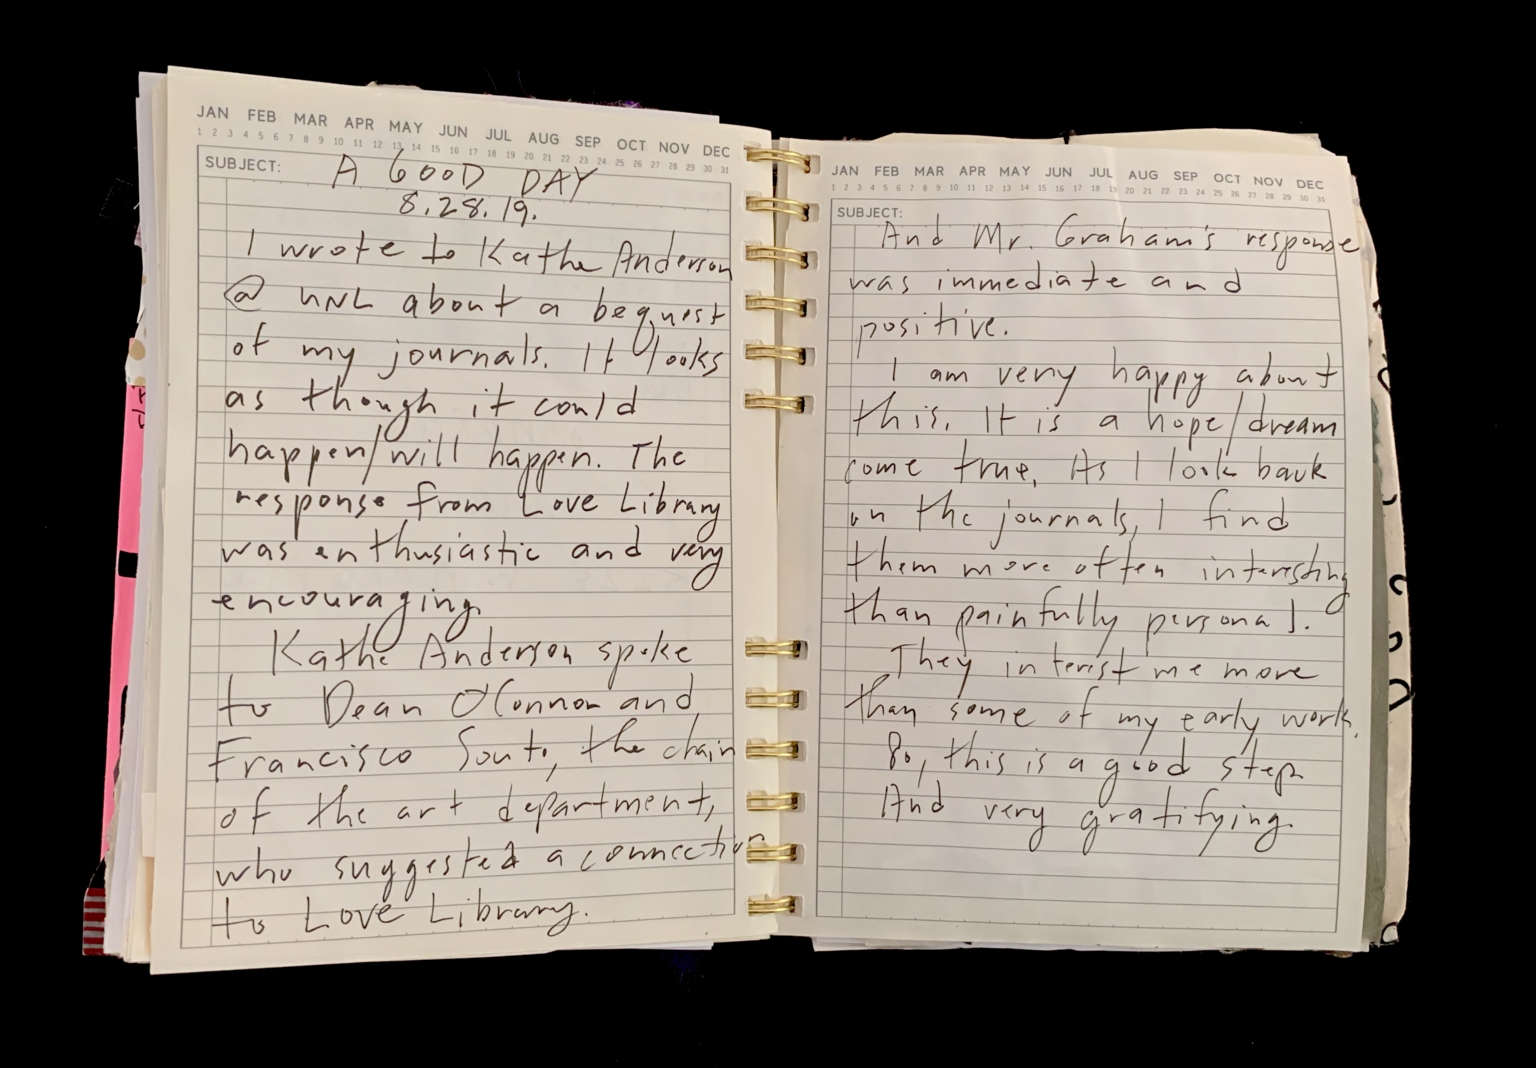 JAN FEB MAR APR MAY JUN JUL AUG SEP OCT NOV DEC
1 2 3 4 5 6 7 8 9 10 11 12 13 14 15 16 17 18 19 20 21 22 23 24 25 26 27 28 29 30 31
SUBJECT: A GOOD DAY
8.28.19.
I wrote to Kathe Anderson
@ UNL about a bequest
of my journals. It looks
as though it could
happen/will happen. The
response from Love Library
was enthusiastic and very
encouraging.
Kathe Anderson spoke
to Dean O'Connor and
Francisco Souto, the chair
of the art department,
who suggested a connection
to Love Library.
JAN FEB MAR APR MAY JUN JUL AUG SEP OCT NOV DEC
1 2 3 4 5 6 7 8 9 10 11 12 13 14 15 16 17 18 19 20 21 22 23 24 25 26 27 28 29 30 31
SUBJECT:
And Mr. Graham's response
was immediate and
positive.
I am very happy about
this. It is a hope/dream
come true. As I look back
on the journals, I find
them more often interesting
than painfully personal.
They interest me more
than some of my early work.
So, this is a good step.
And very gratifying.